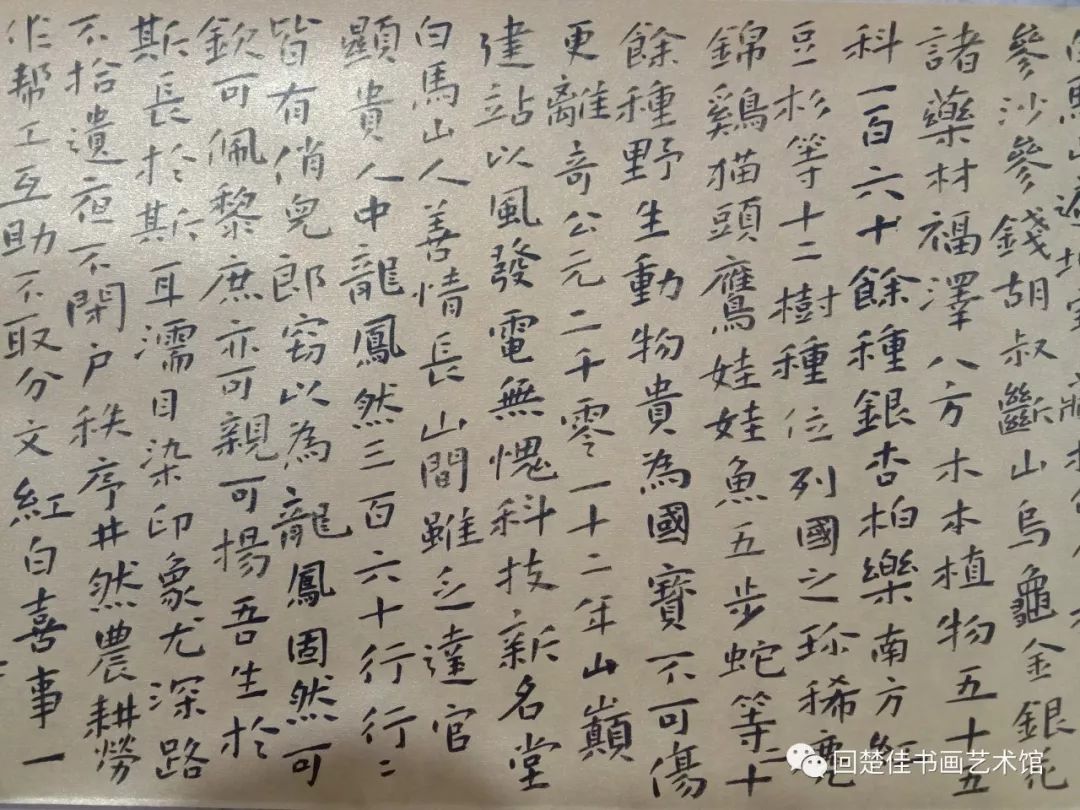 馬山遍地
參沙參錢胡叔斷山烏龜金銀花
諸藥材福澤八方木本植物五十五
科一百六十餘種銀杏柏樂南方紅
豆杉等十二樹種位列國之珍稀
錦鷄猫頭鷹娃娃魚五步蛇等二十
餘種野生動物貴為國寶不可傷
更離奇公元二千零一十二年山巔
建站以風發電無愧科技新名堂
白馬山人善情長山間雖乏達官
顯貴人中龍鳳然三百六十行行〻
皆有俏兒郎窃以為龍鳳固然可
欽可佩黎庶亦可親可揚吾生於
斯長於斯耳濡目染印象尤深路
不拾遺夜不閉户秩序井然農耕勞
作帮工互助不取分文紅白喜事一
回楚佳书画艺术馆